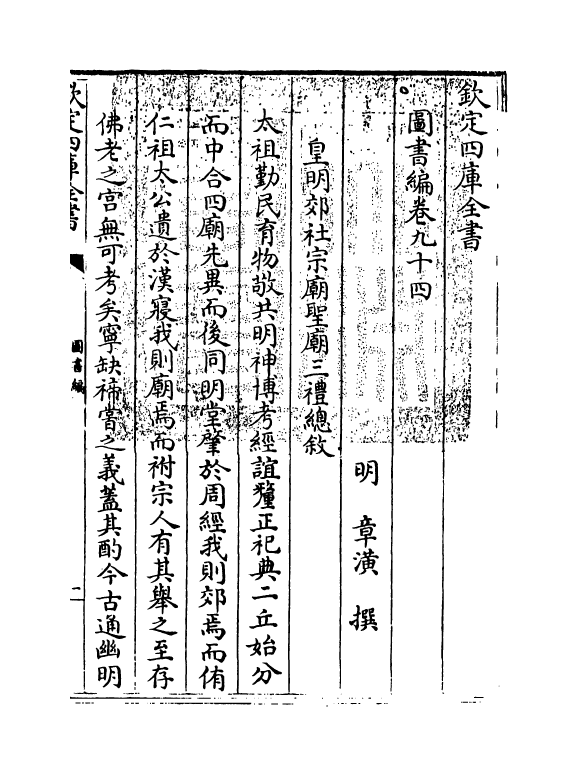 欽定四庫全書
圖書編卷九十四
明 章潢 撰
皇明郊社宗廟聖廟三禮總敘
太祖勤民育物敬共明神博考經誼釐正祀典二丘始分
而中合四廟先異而後同明堂肇於周經我則郊焉而侑
仁祖太公遺於漢寢我則廟焉而祔宗人有其舉之至存
佛老之宫無可考矣寧缺禘嘗之義蓋其酌今古通幽明
欽定四庫全書
圖書編
二